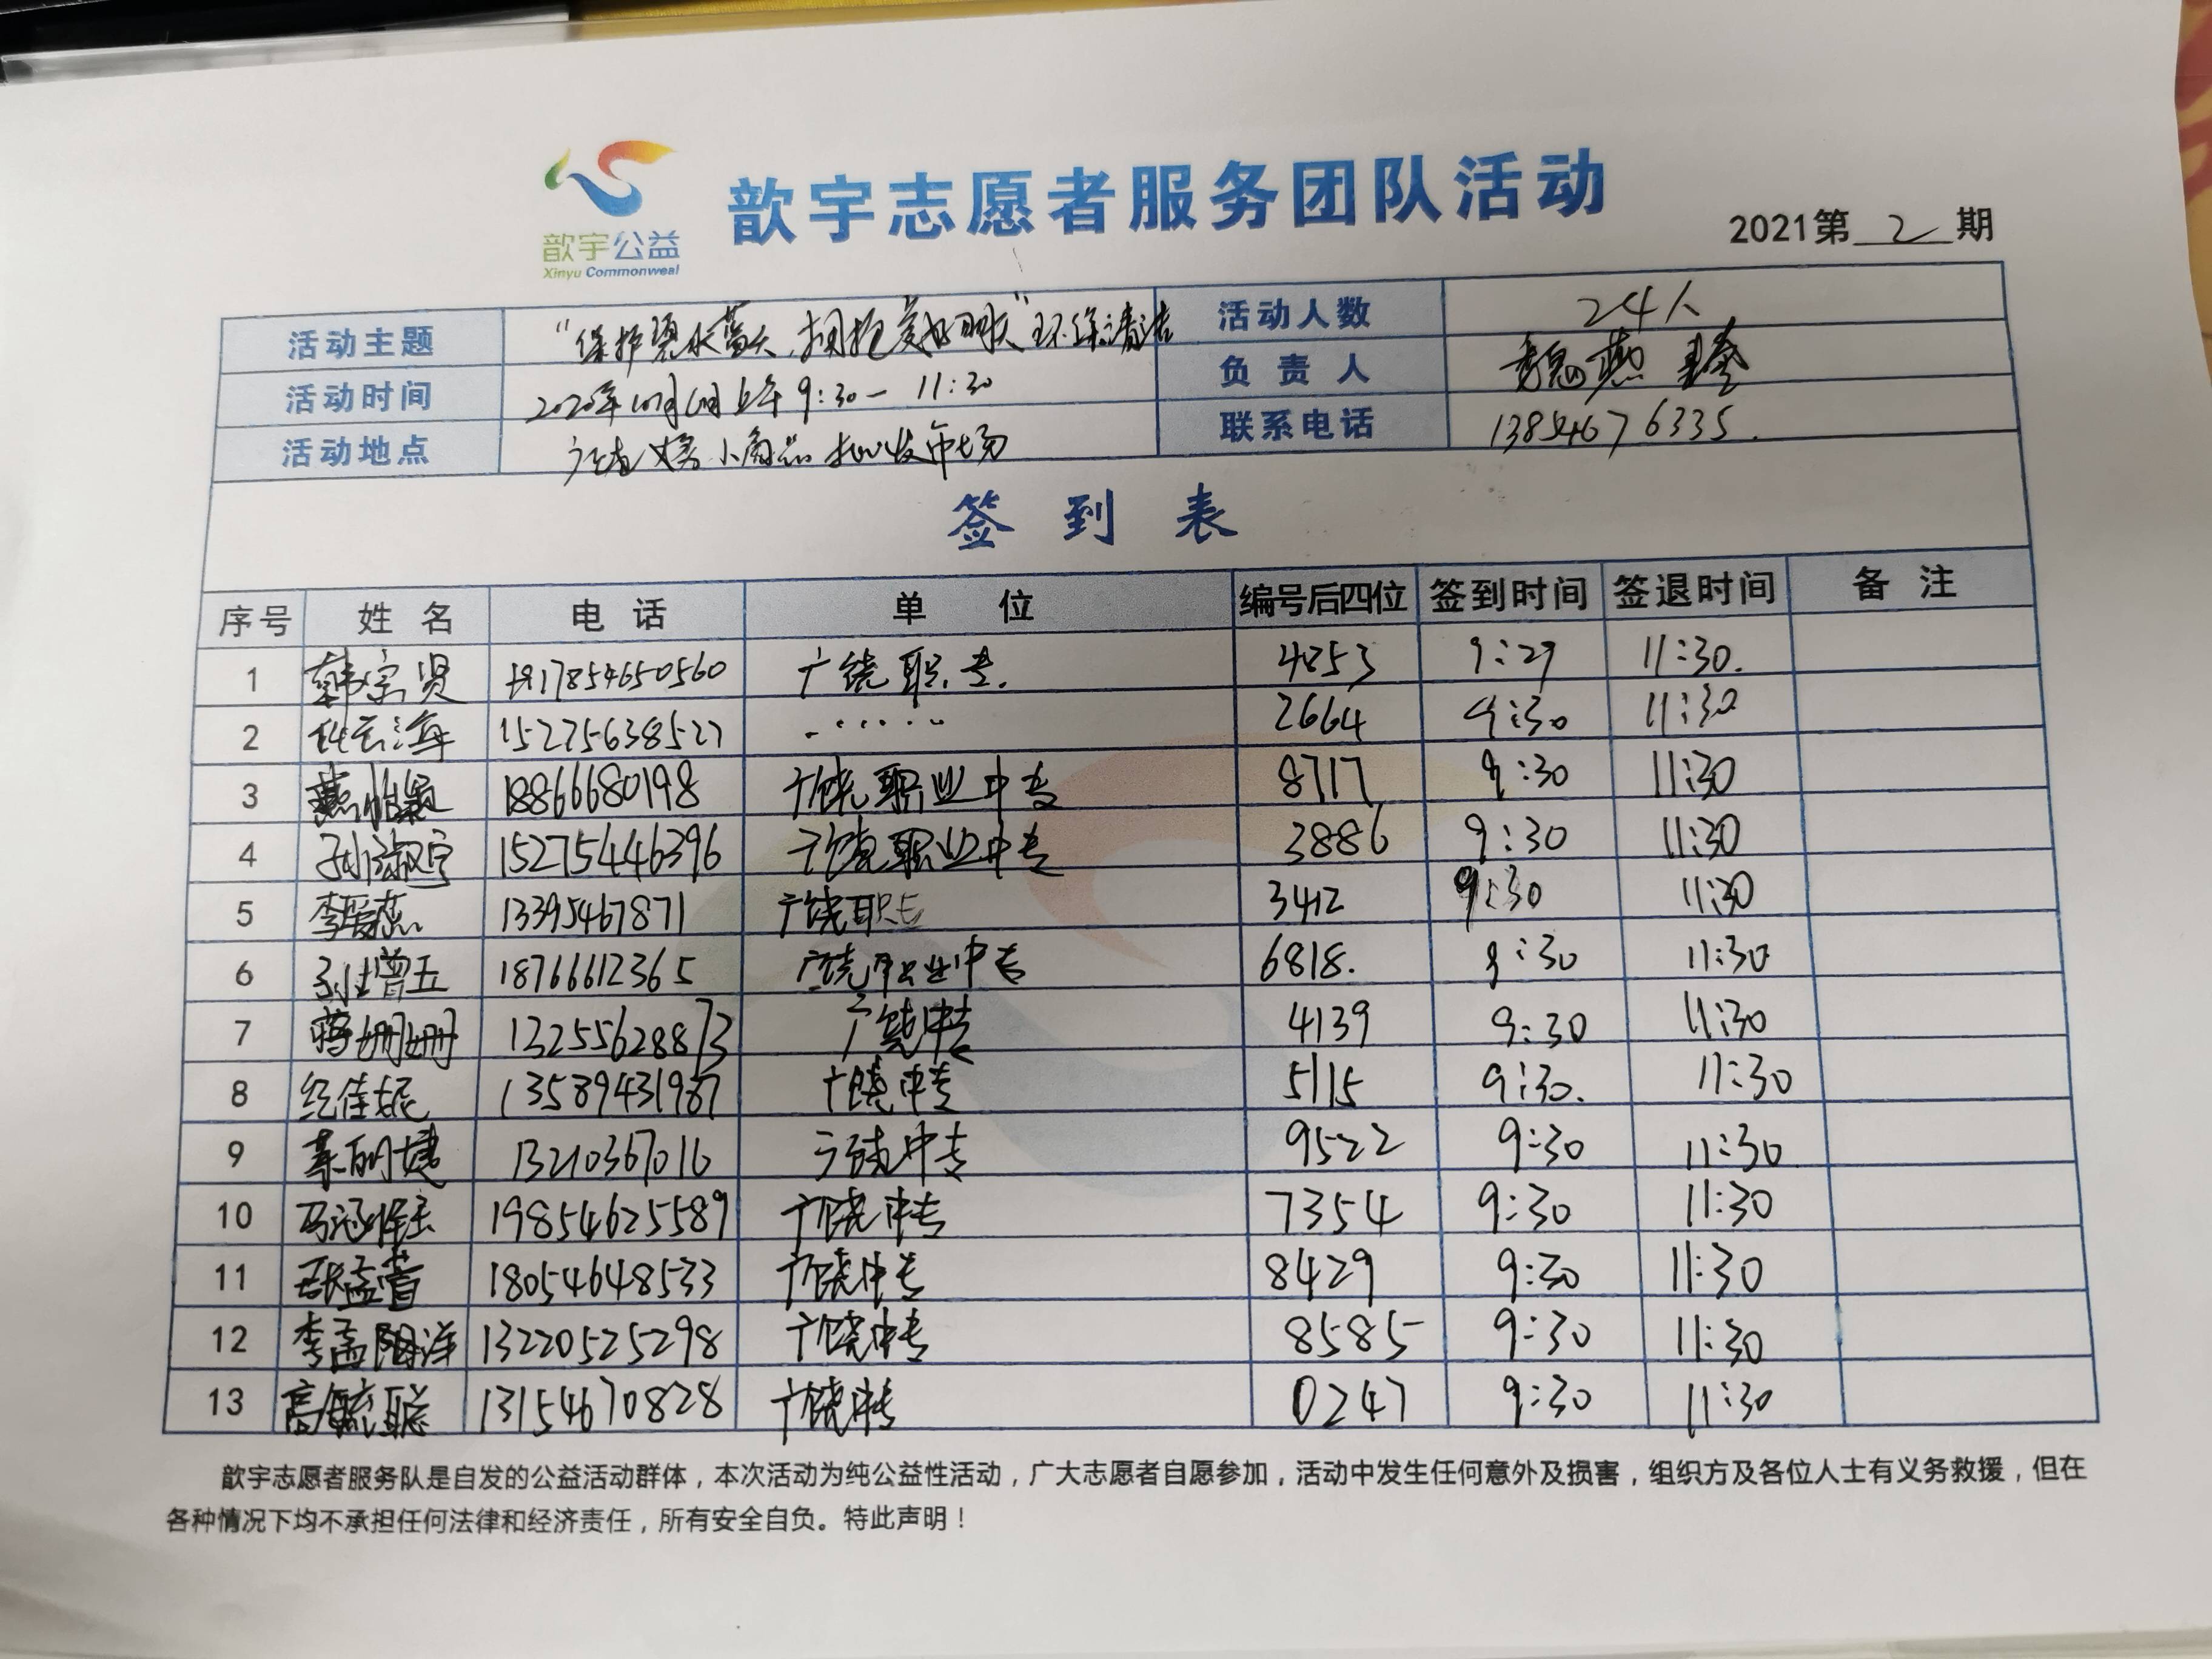 歆宇公益
Xinyu Commonweal
歆宇志愿者服务团队活动
2021第 2 期
活动主题 "保护碧水蓝天,拥抱美好明天"环保清洁 活动人数 24人
活动时间 2020年10月6日上午 9:30— 11:30 负责人 魏燕
活动地点 小商品批发市场 联系电话 13854676335.
签到表
序号 姓名 电话 单位 编号后四位 签到时间 签退时间 备注
1 韩宗贤 17854650560 广饶职专. 4853 9:29 11:30.
2 海 15275638527 2664 9:30 11:30
3 燕怡颖 18866680198 广饶职业中专 8717 9:30 11:30
4 孙淑宁 15275446396 广饶职业中专 3886 9:30 11:30
5 李媛燕 13395467871 广饶职 3412 9:30 11:30
6 孙增五 18766612365 广饶职业中专 6818. 9:30 11:30
7 蒋姗姗 13255628873 广饶中专 4139 9:30 11:30
8 佳妮 13589431987 广饶中专 5115 9:30. 11:30
9 13210367016 广饶中专 9522 9:30 11:30
10 马 19854625589 广饶中专 7354 9:30 11:30
11 张孟萱 18054648533 广饶中专 8429 9:30 11:30
12 李孟阳洋 13220525298 广饶中专 8585 9:30 11:30
13 高毓聪 13154670828 广饶中专 0247 9:30 11:30
歆宇志愿者服务队是自发的公益活动群体，本次活动为纯公益性活动，广大志愿者自愿参加，活动中发生任何意外及损害，组织方及各位人士有义务救援，但在
各种情况下均不承担任何法律和经济责任，所有安全自负。特此声明！